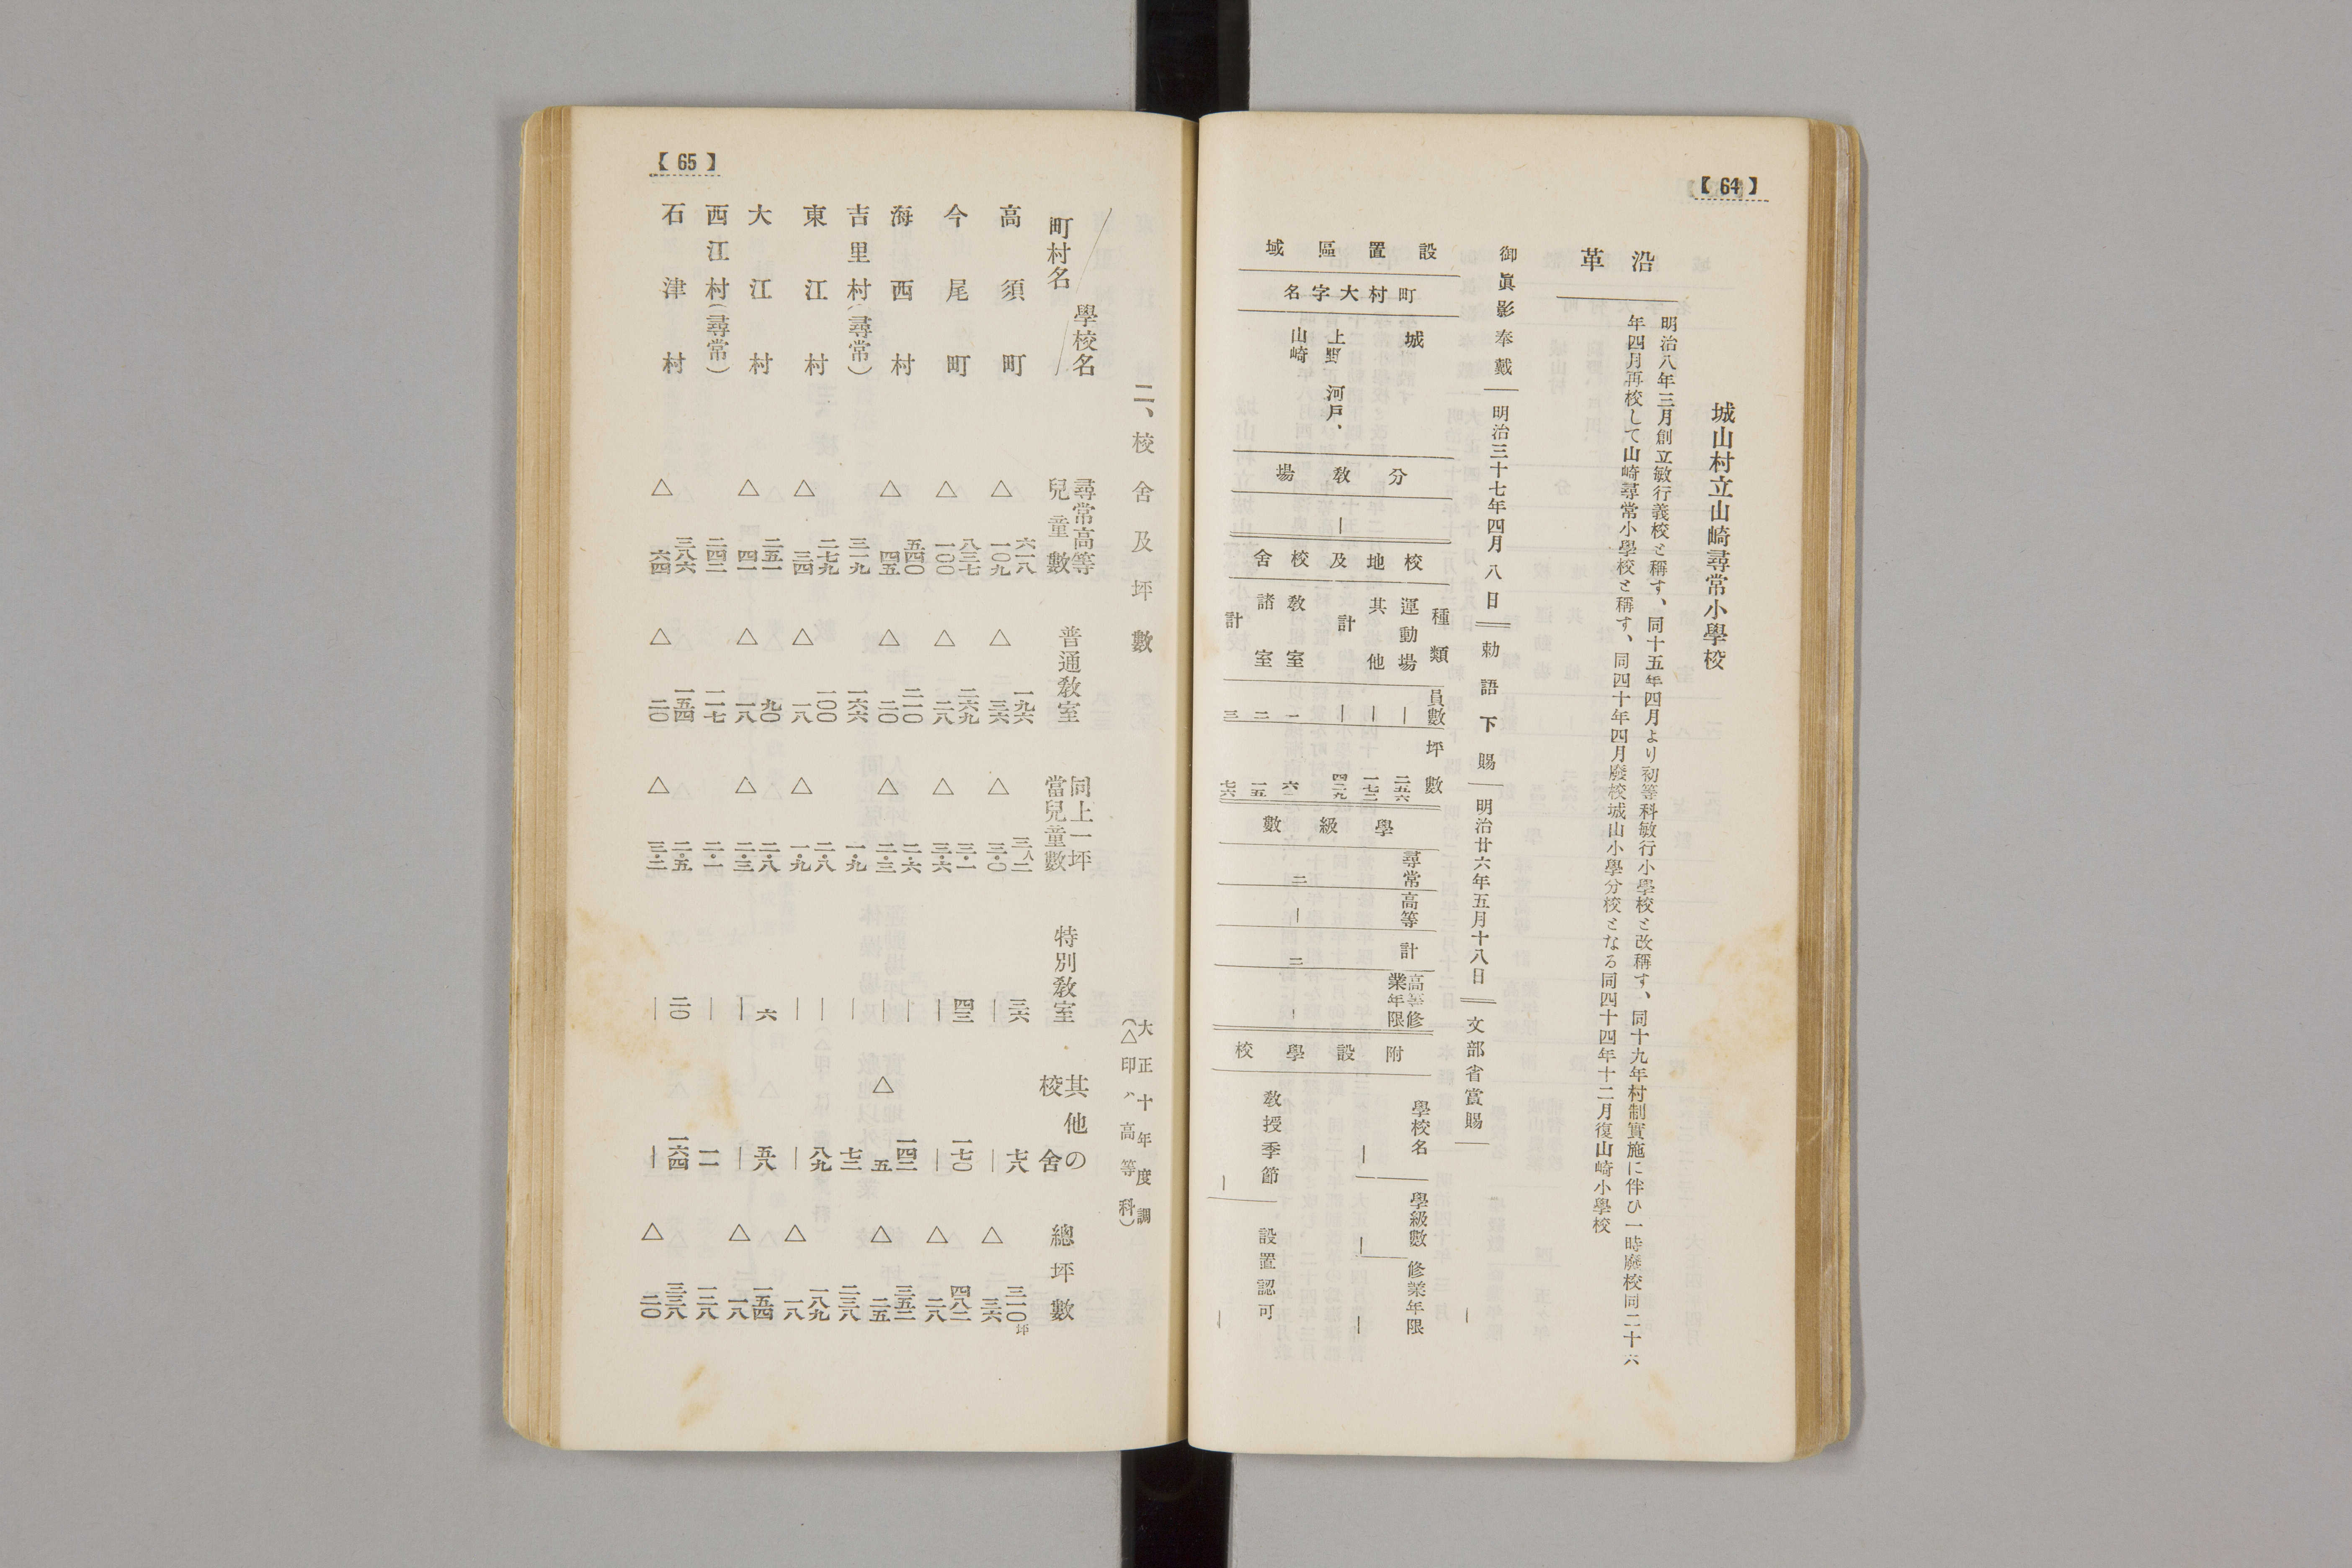 【64】
城山村立山崎尋常小學校
沿革
明治八年三月創立敏行義校と稱す、同十五年四月より初等科敏行小學校と改稱す、同十九年村制實施に伴ひ一時廢校同二十六
年四月再校して山崎尋常小學校と稱す、同四十年四月廢校城山小學分校となる同四十四年十二月復山崎小學校
御眞影奉戴 明治三十七年四月八日 勅語下賜 明治廿六年五月十八日 文部省賞賜 ―
設置區域
町村大字名
城
上野 河戸、
山崎
分教場
―
校地及校舍
種類 員數 坪數
運動場 ― 二五六
其他 ― 一七三
計 ― 四二九
教室 一 六一
諸室 二 一五
計 三 七六
學級數
尋常 二
高等 ―
計 二
高等修業年限 ―
附設學校
學校名 ―
學級數 ―
修業年限 ―
教授季節 ―
設置認可 ―
【65】
二、校舍及坪數
大正十年度調
(△印ハ高等科)
町村名 學校名 尋常高等兒童數 普通教室 同上一坪當兒童數 特別教室 其他の校舍 總坪數
高須町 六一八 一九六 三人・二 三六 七八 三一〇坪
△一〇九 △三六 △三・〇 ― ― △三六
今尾町 八三七 二六九 三・一 四三 一七〇 四八二
△一〇〇 △二八 △三・六 ― ― △二八
海西村 五四〇 二一〇 二・六 ― 一四二 三五二
△四五 △二〇 △二・三 ― △五 △二五
吉里村(尋常) 三一九 一六六 一・九 ― 七二 二三八
東江村 二七九 一〇〇 二・八 ― 八九 一八九
△三四 △一八 △一・九 ― ― △一八
大江村 二五一 九〇 二・八 六 五八 一五四
△四一 △一八 △二・三 ― ― △一八
西江村(尋常) 二四二 一一七 二・一 ― 一一 一二八
石津村 三八六 一五四 二・五 二〇 一六四 三三八
△六四 △二〇 △三・二 ― ― △二〇